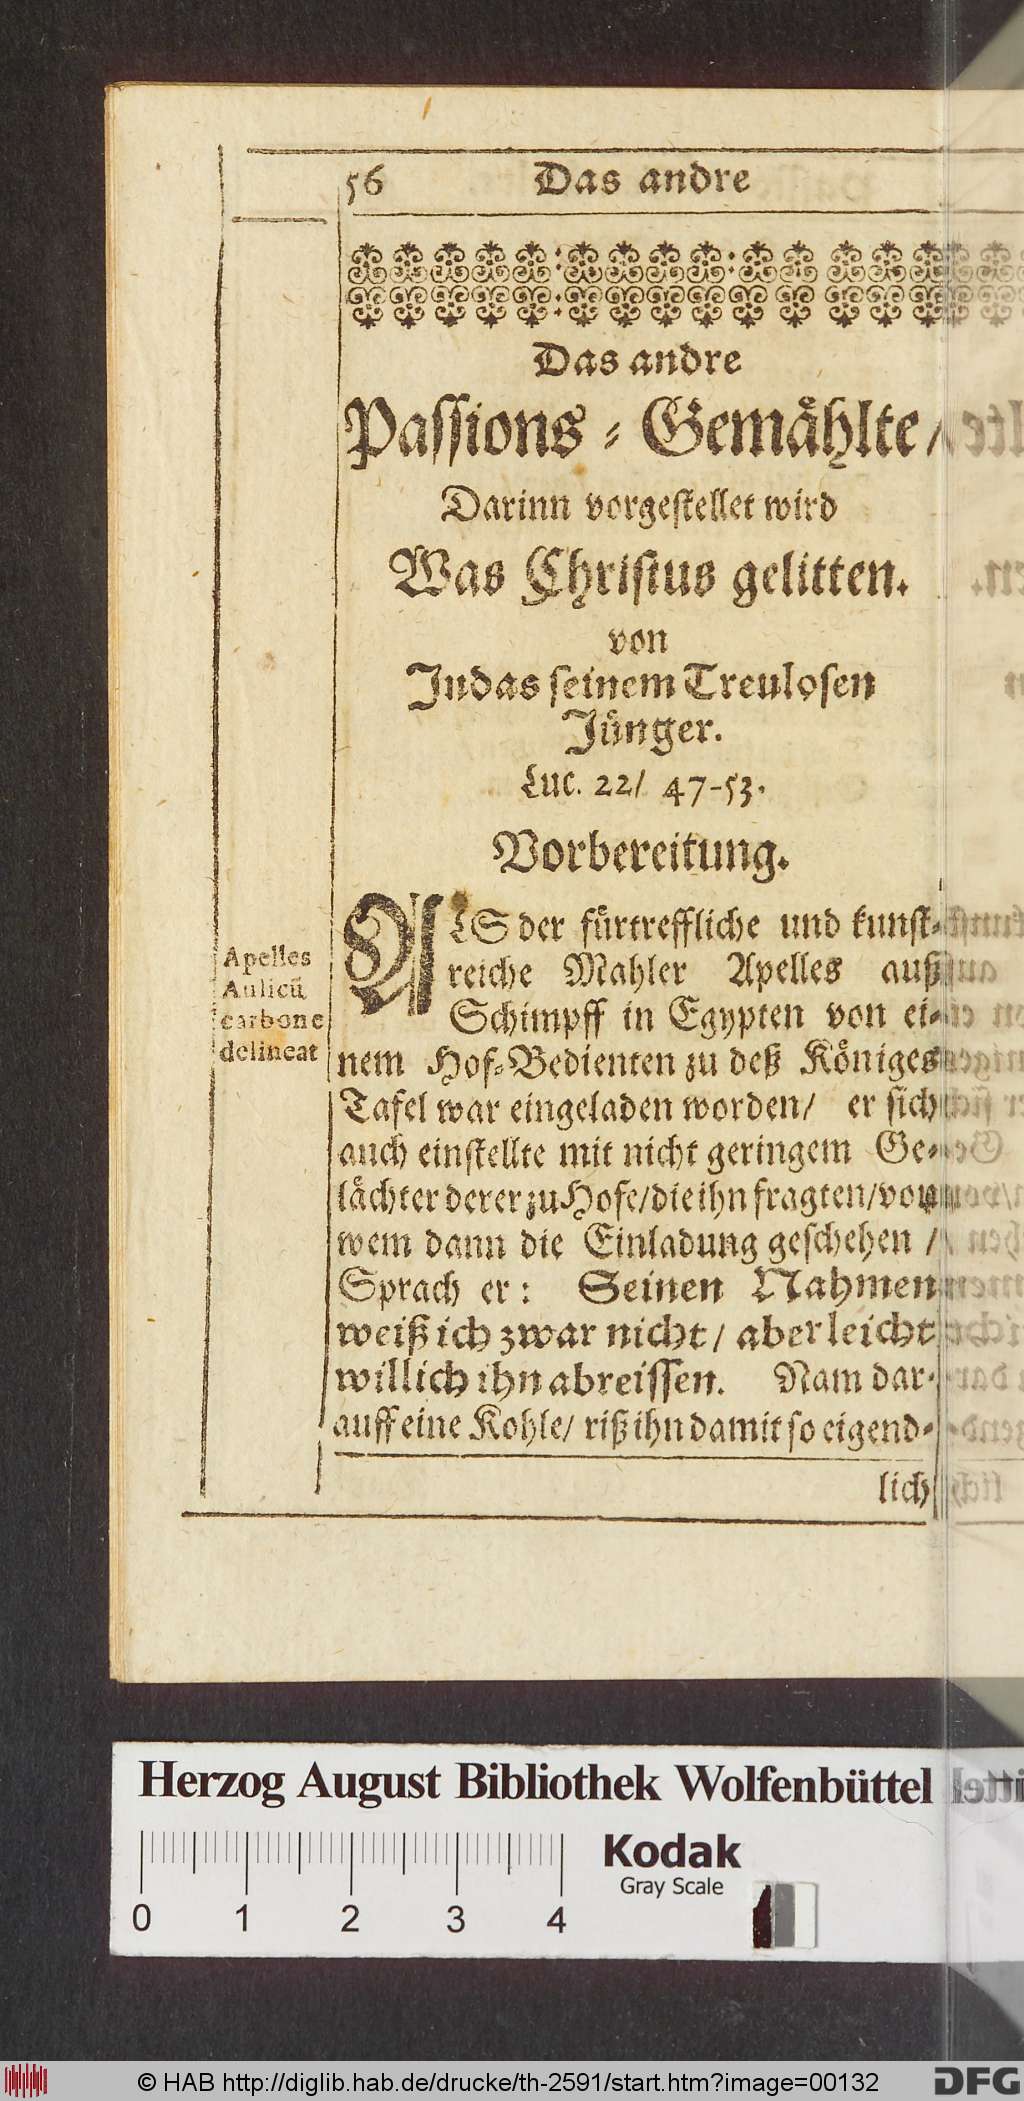 56 Das andre
Das andre
Passions-Gemählte/
Darinn vorgestellet wird
Was Christus gelitten.
von
Judas seinem Treulosen
Jünger.
Luc. 22/ 47-53.
Vorbereitung.
Apelles
Aulicũ
carbone
delineat
ALS der fürtreffliche und kunst-
reiche Mahler Apelles auß
Schimpff in Egypten von ei-
nem Hof-Bedienten zu deß Königes
Tafel war eingeladen worden/ er sich
auch einstellte mit nicht geringem Ge-
lächter derer zu Hofe/ die ihn fragten/ von
wem dann die Einladung geschehen /
Sprach er: Seinen Nahmen
weiß ich zwar nicht/ aber leicht
will ich ihn abreissen. Nam dar-
auff eine Kohle/ riß ihn damit so eigend-
lich
Herzog August Bibliothek Wolfenbüttel
Kodak
Gray Scale
0 1 2 3 4
© HAB http://diglib.hab.de/drucke/th-2591/start.htm?image=00132
DFG